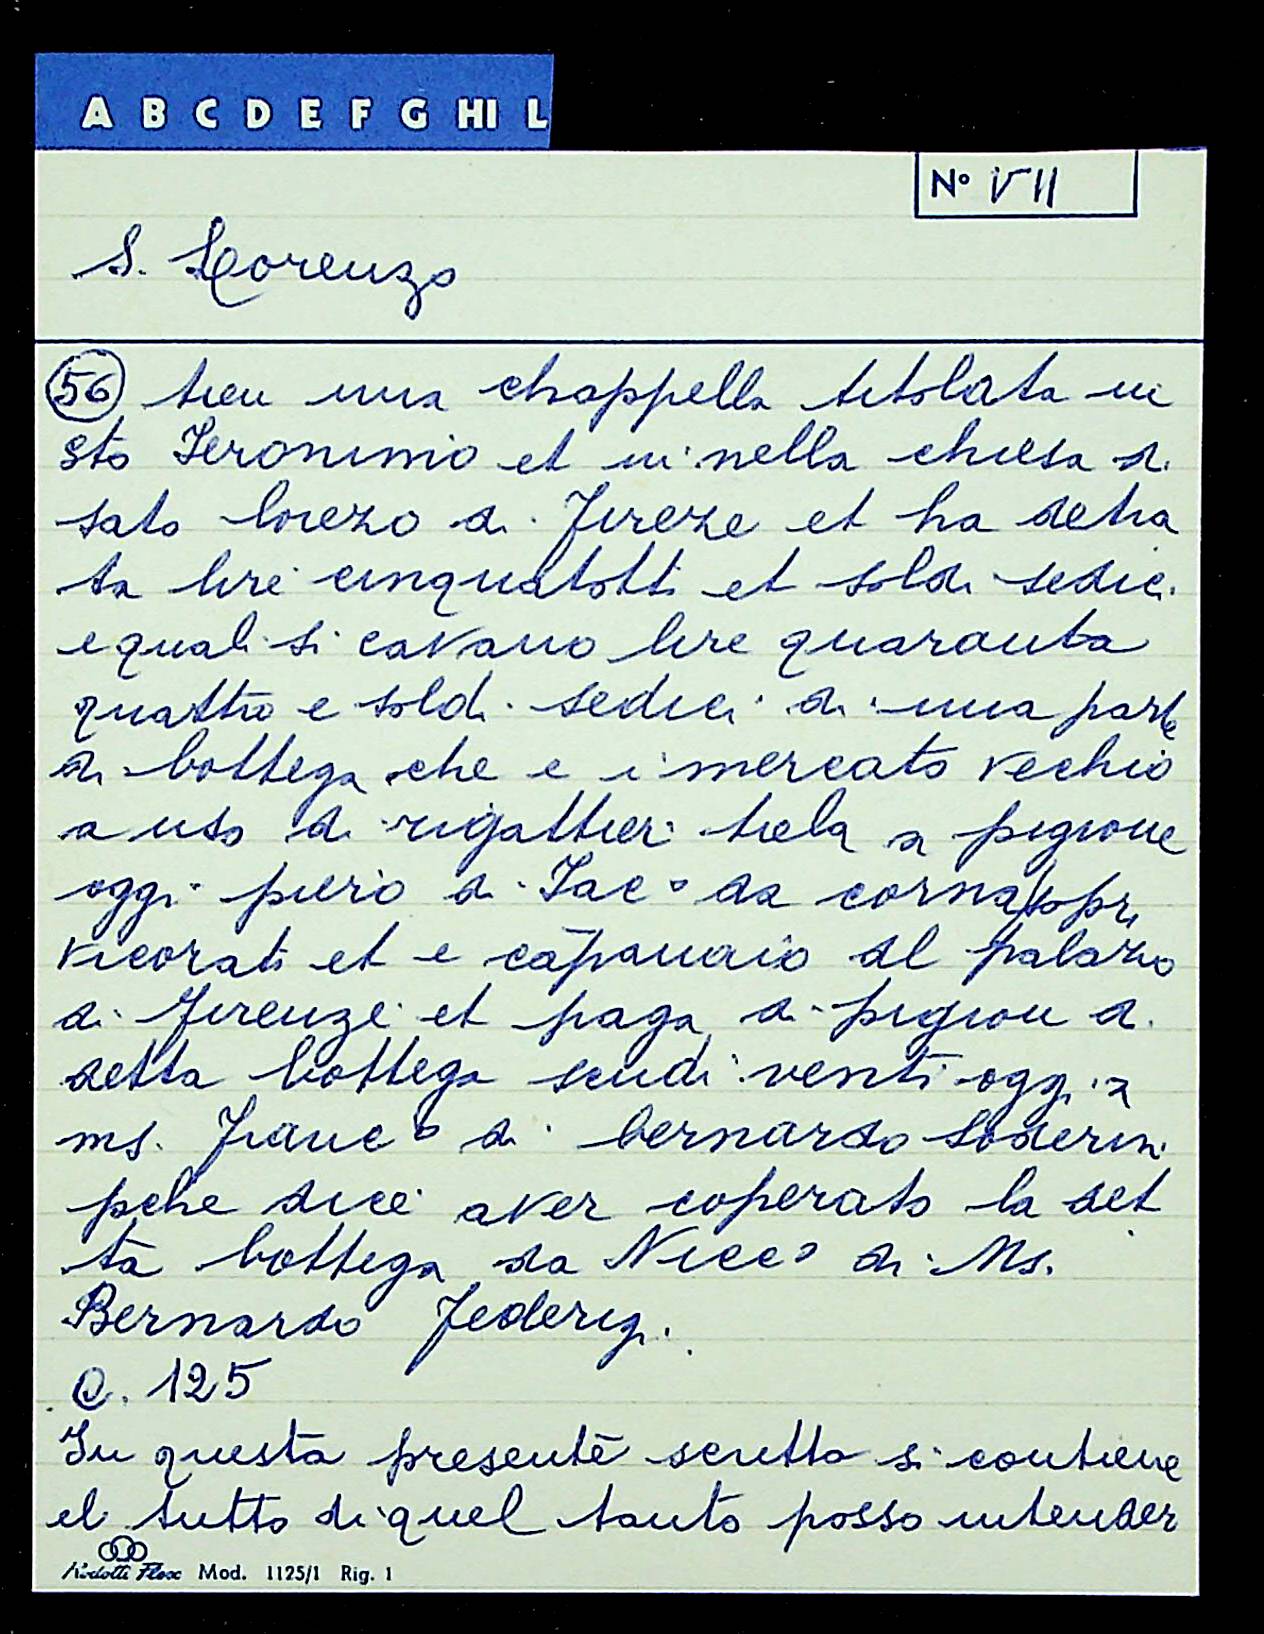 A B C D E F G HI L
N° VII
S. Lorenzo
56 tien una chappella titolata in
sto Ieronimo et in nella chiesa di
sato lorezo di Fireze et ha detra
ta lire cinquatotti et soldi sedici
e quali si cavano lire quaranta
quattro e soldi sedici di una parte
di bottega che e i mercato vechio
a uso di rigattieri tiela a pigione
oggi piero di Iac° da corna sopr
vicorati et e cāpanaio al palazo
di Firenze et paga di pigion di
detta bottega scudi venti oggi a
ms. Franc° di bernardo Soderin
pche dice aver coperato la det
ta bottega da Nicc° di Ms.
Bernardo Federigi.
C. 125
In questa presente scritta si contiene
el tutto di quel tanto posso intender
Mod. 1125/1 Rig. 1